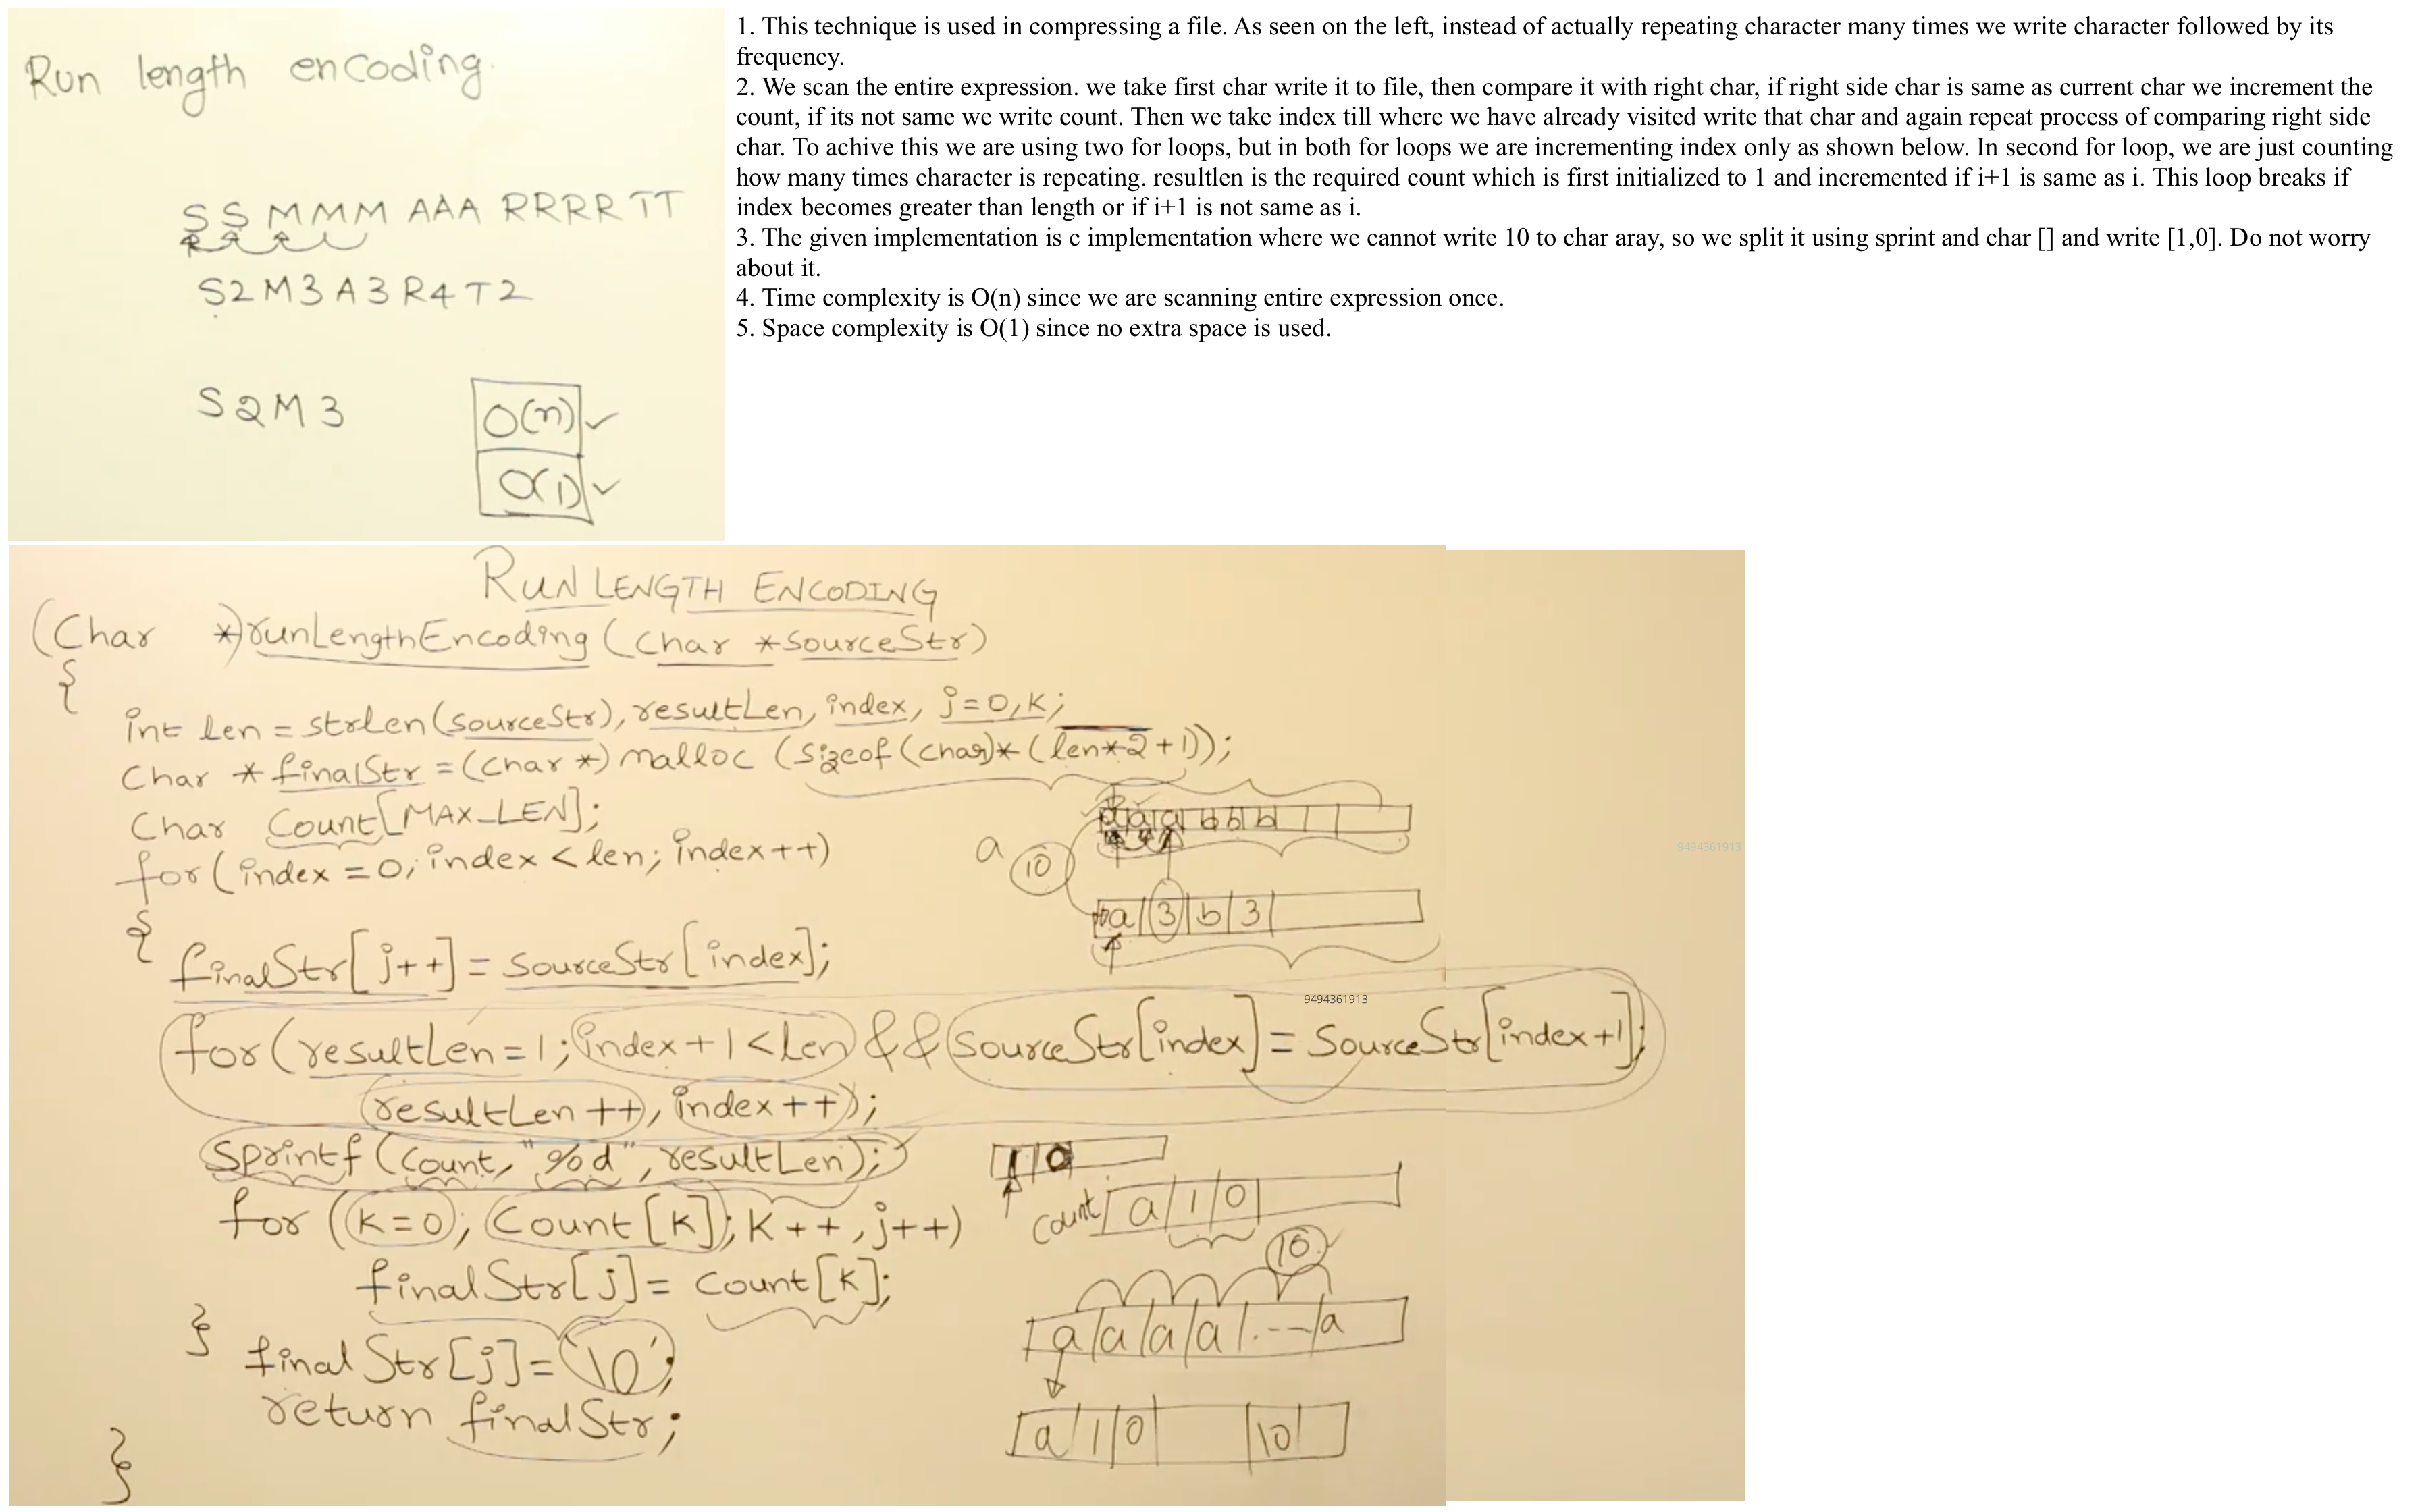 Run length encoding.
SSMMMAAARRRRTT
S2M3A3R4T2
S2M3
O(n)
O(1)
1. This technique is used in compressing a file. As seen on the left, instead of actually repeating character many times we write character followed by its
frequency.
2. We scan the entire expression. we take first char write it to file, then compare it with right char, if right side char is same as current char we increment the
count, if its not same we write count. Then we take index till where we have already visited write that char and again repeat process of comparing right side
char. To achive this we are using two for loops, but in both for loops we are incrementing index only as shown below. In second for loop, we are just counting
how many times character is repeating. resultlen is the required count which is first initialized to 1 and incremented if i+1 is same as i. This loop breaks if
index becomes greater than length or if i+1 is not same as i.
3. The given implementation is c implementation where we cannot write 10 to char aray, so we split it using sprint and char [] and write [1,0]. Do not worry
about it.
4. Time complexity is O(n) since we are scanning entire expression once.
5. Space complexity is O(1) since no extra space is used.
RUN LENGTH ENCODING
(Char *)runLengthEncoding (char *sourceStr)
{
int len = strlen(sourceStr), resultLen, index, j=0,k;
Char * finalStr = (char *) malloc (sizeof(char)* (len*2+1));
Char Count[MAX_LEN];
for(index =0; index < len; index++)
{
finalStr[j++] = sourceStr[index];
for(resultLen=1; index+1<len && sourceStr[index] = sourceStr[index+1];
resultLen ++, index++);
sprintf (count, "%d", resultLen);
for (k=0; Count[k]; k++, j++)
finalStr[j]= count[k];
}
finalStr[j]='\0';
return finalStr;
}
a a a b b b
a 10
a 3 b 3
9494361913
9494361913
1 0
count a 1 0
10
a a a a .-- a
a 1 0 \0